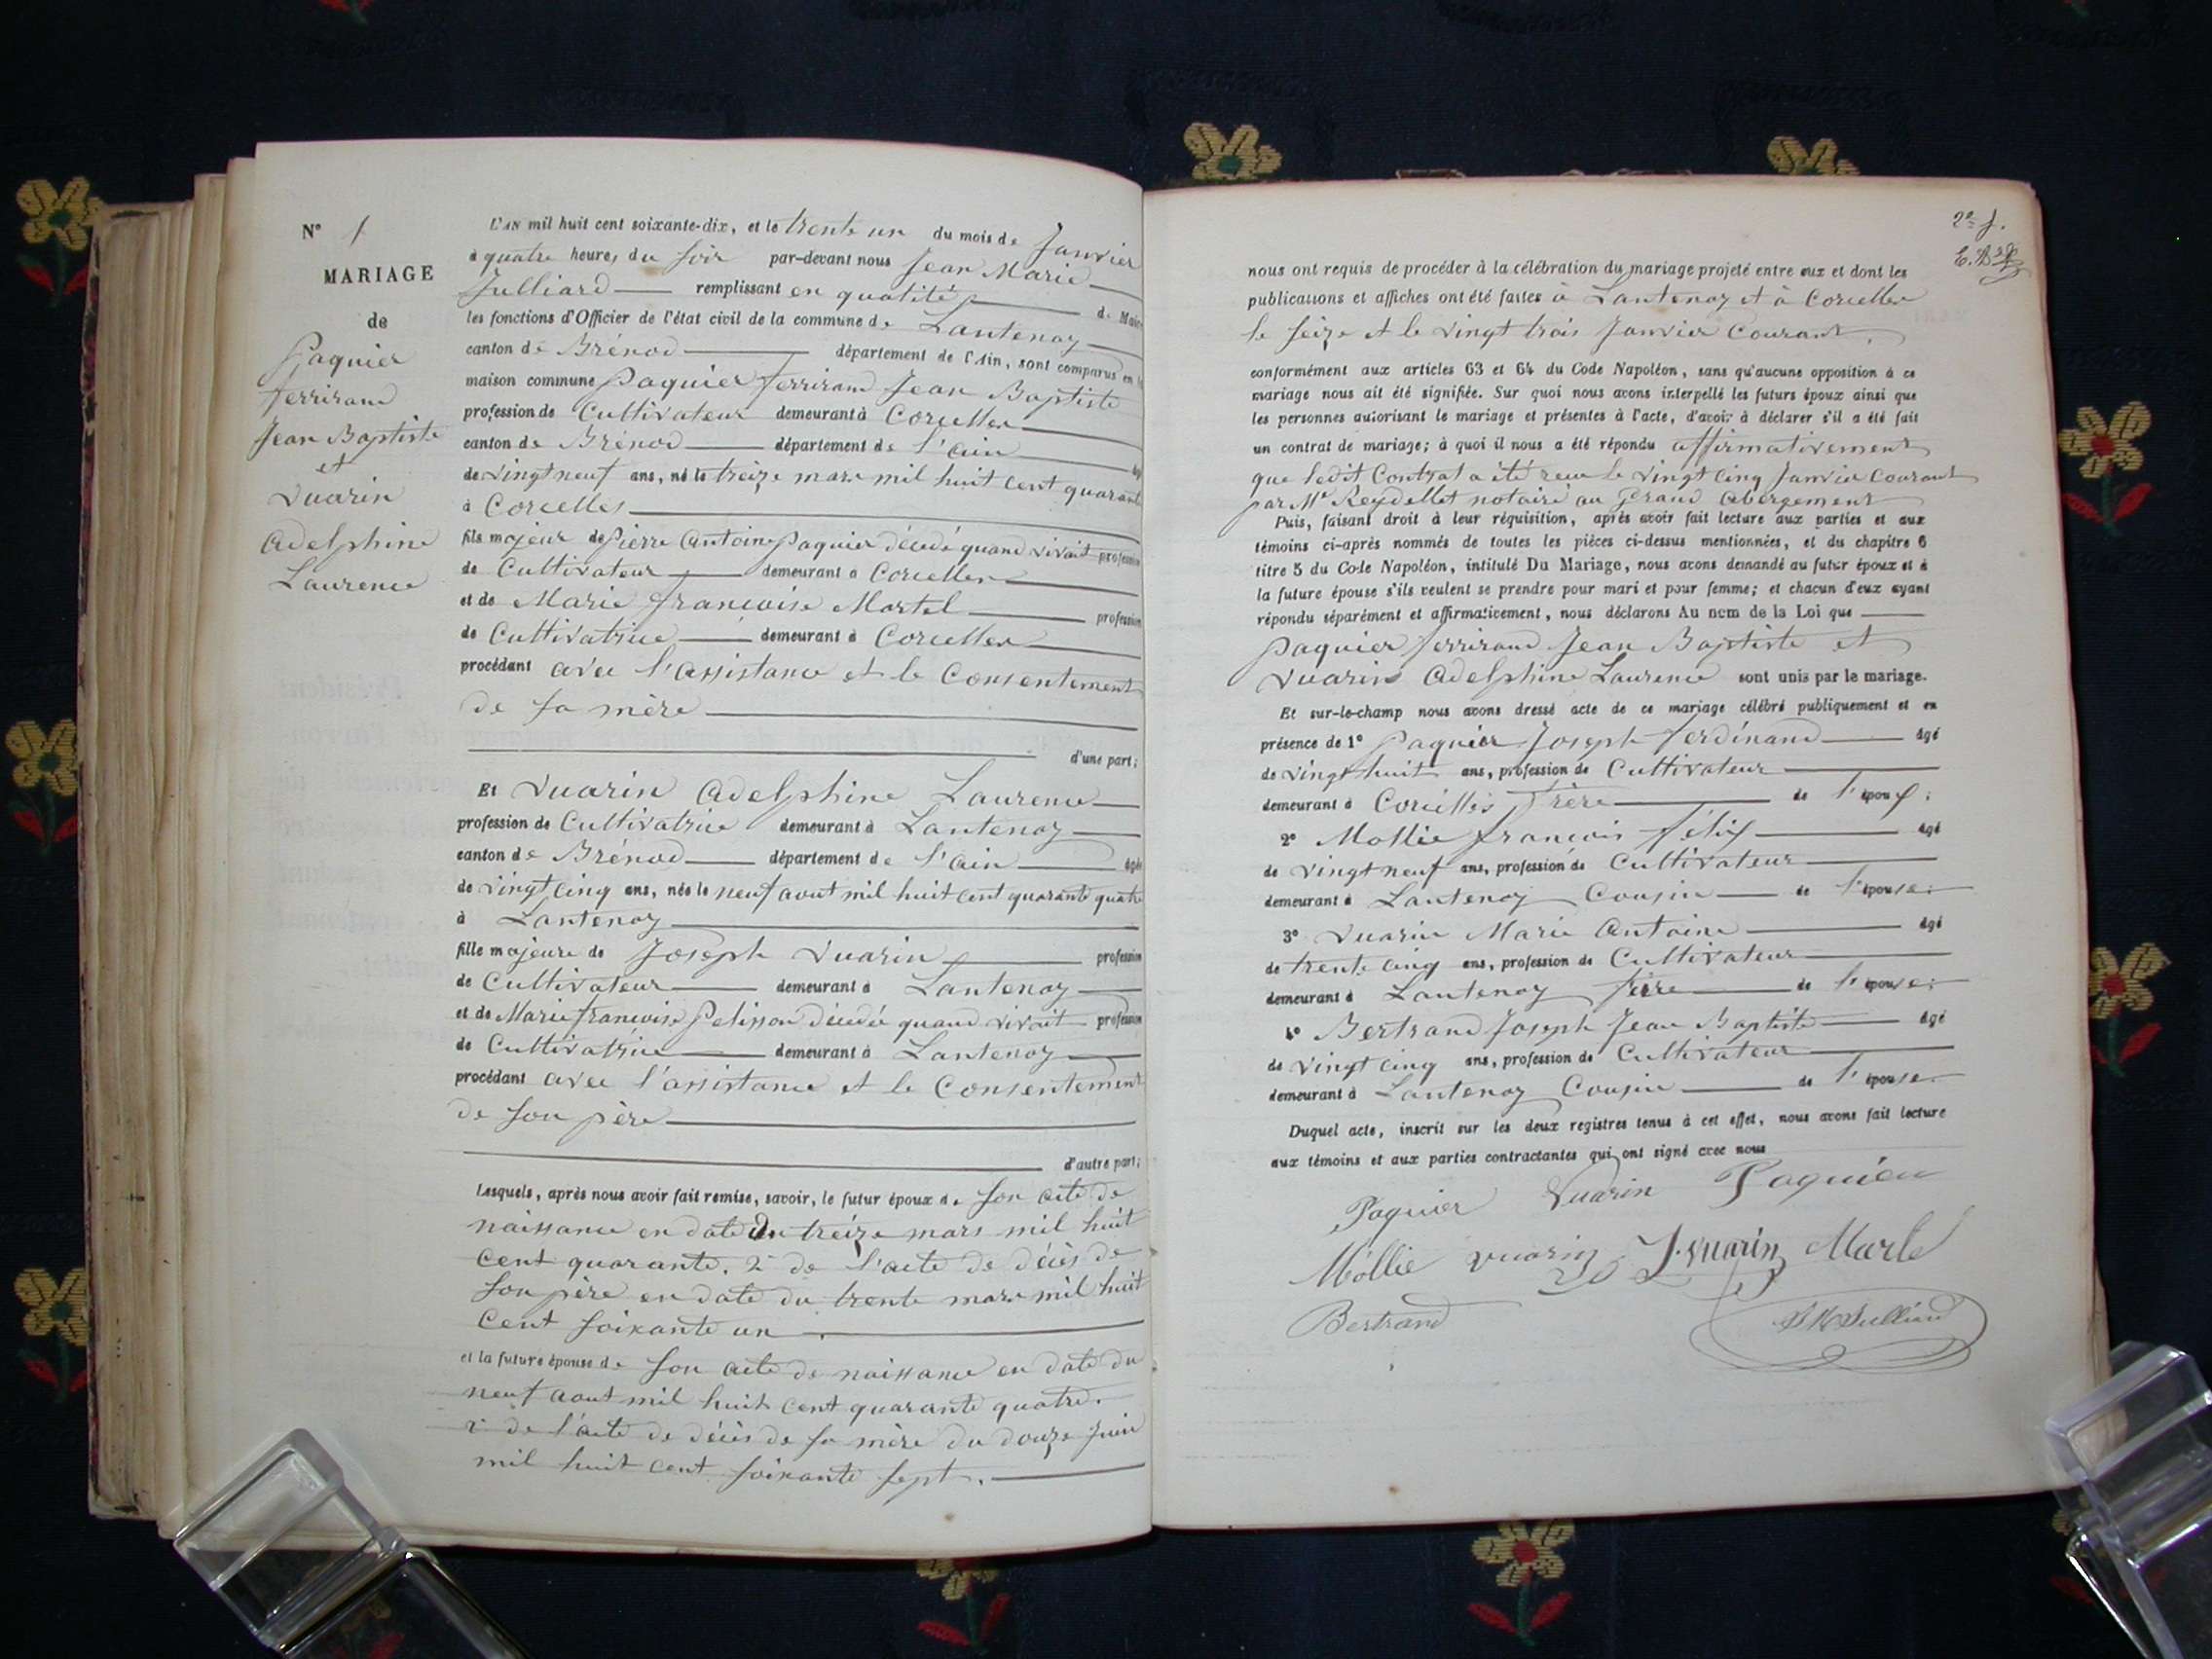 N° 1
MARIAGE
de
Paquier
ferrirand
Jean Baptiste
et
Vuarin
Adelphine
Laurence
L'AN mil huit cent soixante-dix, et le trente un du mois de Janvier
à quatre heures du soir par-devant nous Jean Marie
Julliard remplissant en qualité de Maire
les fonctions d'Officier de l'état civil de la commune de Lantenay
canton de Brénod département de l'Ain, sont comparus en la
maison commune Paquier ferrirand Jean Baptiste
profession de Cultivateur demeurant à Corcelles
canton de Brénod département de l'ain âgé
de vingt neuf ans, né le treize mars mil huit cent quarante
à Corcelles
fils majeur de Pierre Antoine Paquier décédé quand vivait profession
de Cultivateur demeurant à Corcelles
et de Marie françoise Martel profession
de Cultivatrice demeurant à Corcelles
procédant avec l'assistance et le Consentement
de sa mère
d'une part;
Et Vuarin Adelphine Laurence
profession de Cultivatrice demeurant à Lantenay
canton de Brénod département de l'ain âgée
de vingt cinq ans, née le neuf aout mil huit cent quarante quatre
à Lantenay
fille majeure de Joseph Vuarin profession
de Cultivateur demeurant à Lantenay
et de Marie françoise Pelisson décédée quand vivait profession
de Cultivatrice demeurant à Lantenay
procédant avec l'assistance et le Consentement
de son père
d'autre part;
Lesquels, après nous avoir fait remise, savoir, le futur époux de son acte de
naissance en date du treize mars mil huit
cent quarante. 2° de l'acte de décès de
son père en date du trente mars mil huit
cent soixante un.
et la future épouse de son acte de naissance en date du
neuf aout mil huit cent quarante quatre.
2° de l'acte de décès de sa mère du douze Juin
mil huit cent soixante sept.
2e f.
nous ont requis de procéder à la célébration du mariage projeté entre eux et dont les
publications et affiches ont été faites à Lantenay et à Corcelles
le seize et le vingt trois Janvier Courant.
conformément aux articles 63 et 64 du Code Napoléon, sans qu'aucune opposition à ce
mariage nous ait été signifiée. Sur quoi nous avons interpellé les futurs époux ainsi que
les personnes autorisant le mariage et présentes à l'acte, d'avoir à déclarer s'il a été fait
un contrat de mariage; à quoi il nous a été répondu affirmativement
que ledit Contrat a été reçu le vingt cinq Janvier Courant
par Me Reydellet notaire au Grand Abergement
Puis, faisant droit à leur réquisition, après avoir fait lecture aux parties et aux
témoins ci-après nommés de toutes les pièces ci-dessus mentionnées, et du chapitre 6
titre 5 du Code Napoléon, intitulé Du Mariage, nous avons demandé au futur époux et à
la future épouse s'ils veulent se prendre pour mari et pour femme; et chacun d'eux ayant
répondu séparément et affirmativement, nous déclarons Au nom de la Loi que
Paquier ferrirand Jean Baptiste et
Vuarin Adelphine Laurence sont unis par le mariage.
Et sur-le-champ nous avons dressé acte de ce mariage célébré publiquement et en
présence de 1° Paquier Joseph ferdinand âgé
de vingt huit ans, profession de Cultivateur
demeurant à Corcelles frère de l'époux;
2° Mollie françois félix âgé
de vingt neuf ans, profession de Cultivateur
demeurant à Lantenay Cousin de l'épouse;
3° Vuarin Marie Antoine âgé
de trente cinq ans, profession de Cultivateur
demeurant à Lantenay frère de l'épouse;
4° Bertrand Joseph Jean Baptiste âgé
de vingt cinq ans, profession de Cultivateur
demeurant à Lantenay Cousin de l'épouse.
Duquel acte, inscrit sur les deux registres tenus à cet effet, nous avons fait lecture
aux témoins et aux parties contractantes qui ont signé avec nous
Paquier Vuarin Paquier
Mollie vuarin J. vuarin Martel
Bertrand JM Julliard